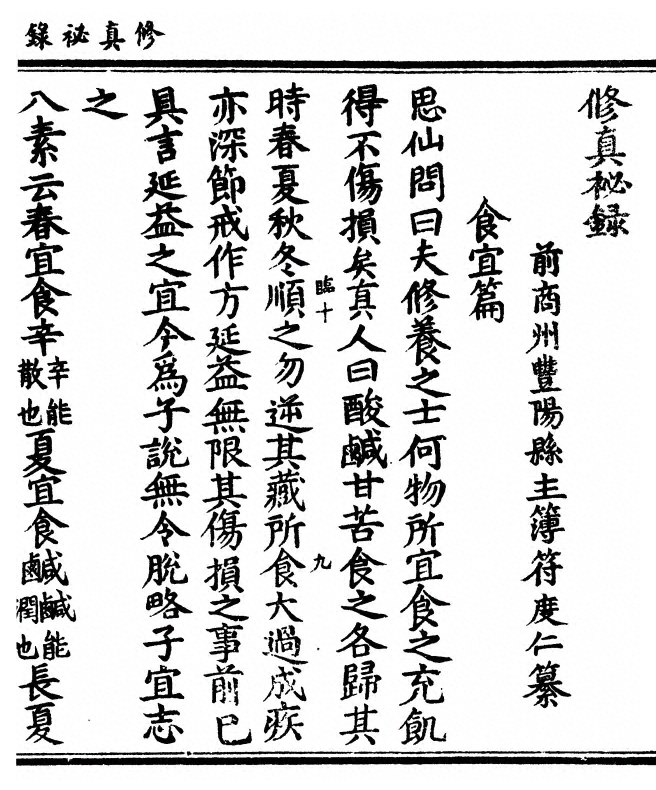 修真祕錄
修真祕錄
前商州豐陽縣主簿符度仁纂
食宜篇
思仙問曰夫修養之士何物所宜食之充飢
得不傷損矣真人曰酸鹹甘苦食之各歸其
時春夏秋冬順之勿逆其藏所食大過成疾
臨十
九
亦深節戒作方延益無限其傷損之事前已
具言延益之宜今為子說無令脫略子宜志
之
八素云春宜食辛辛能散也夏宜食鹹鹹能潤也長夏